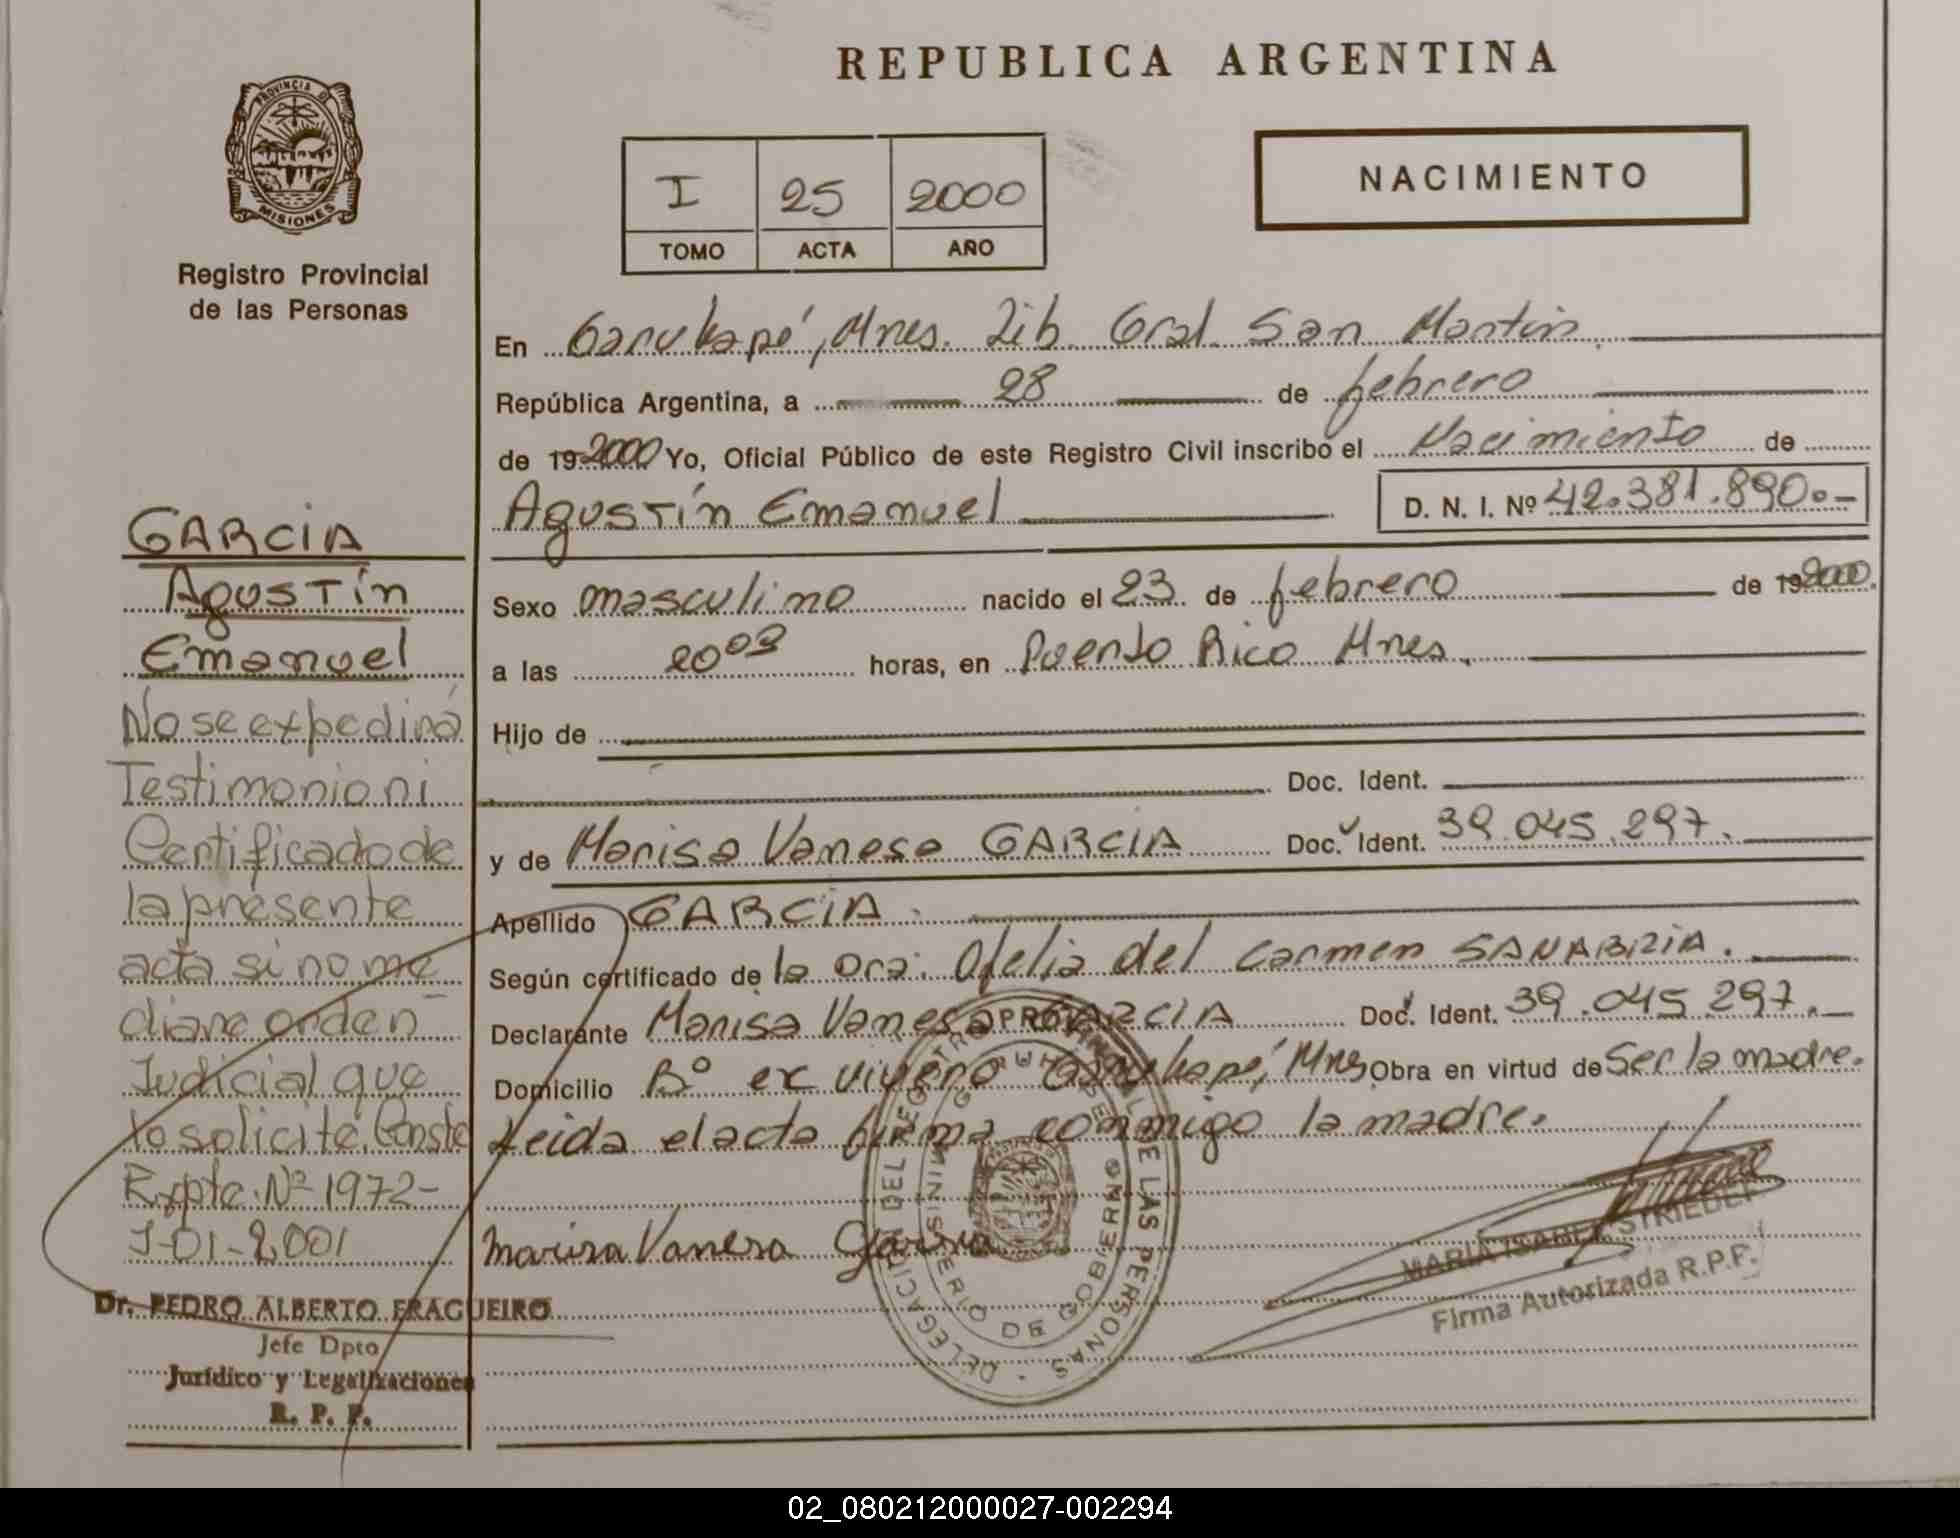 PROVINCIA DE
MISIONES
Registro Provincial
de las Personas
REPUBLICA ARGENTINA
I 25 2000
TOMO ACTA AÑO
NACIMIENTO
En Garuhapé, Mnes. Lib. Gral. San Martín.
República Argentina, a 28 de febrero
de 19 2000 Yo, Oficial Público de este Registro Civil inscribo el Nacimiento de
Agustín Emanuel D. N. I. Nº 42.381.890.-
Sexo masculino nacido el 23 de febrero de 19 2000.
a las 20 03 horas, en Puerto Rico Mnes.
Hijo de
Doc. Ident.
y de Marisa Vanesa GARCIA Doc. Ident. 39.045.297.
Apellido GARCIA.
Según certificado de la Dra. Ofelia del Carmen SANABRIA.
Declarante Marisa Vanesa GARCIA Doc. Ident. 39.045.297.
Domicilio Bº ex vivero Garuhapé, Mnes Obra en virtud de Ser la madre.
Leida el acta firma conmigo la madre.
Marisa Vanesa Garcia
DELEGACION DEL REGISTRO PROVINCIAL DE LAS PERSONAS
GARUHAPE
MINISTERIO DE GOBIERNO
MARIA ISABEL STRIEDER
Firma Autorizada R.P.P.
GARCIA
Agustín
Emanuel
No se expedirá
Testimonio ni
Certificado de
la presente
acta si no me
diare orden
Judicial que
lo solicite. Conste
Expte. Nº 1972-
J-01-2001
Dr. PEDRO ALBERTO FRAGUEIRO
Jefe Dpto
Jurídico y Legalizaciones
R. P. P.
02_080212000027-002294